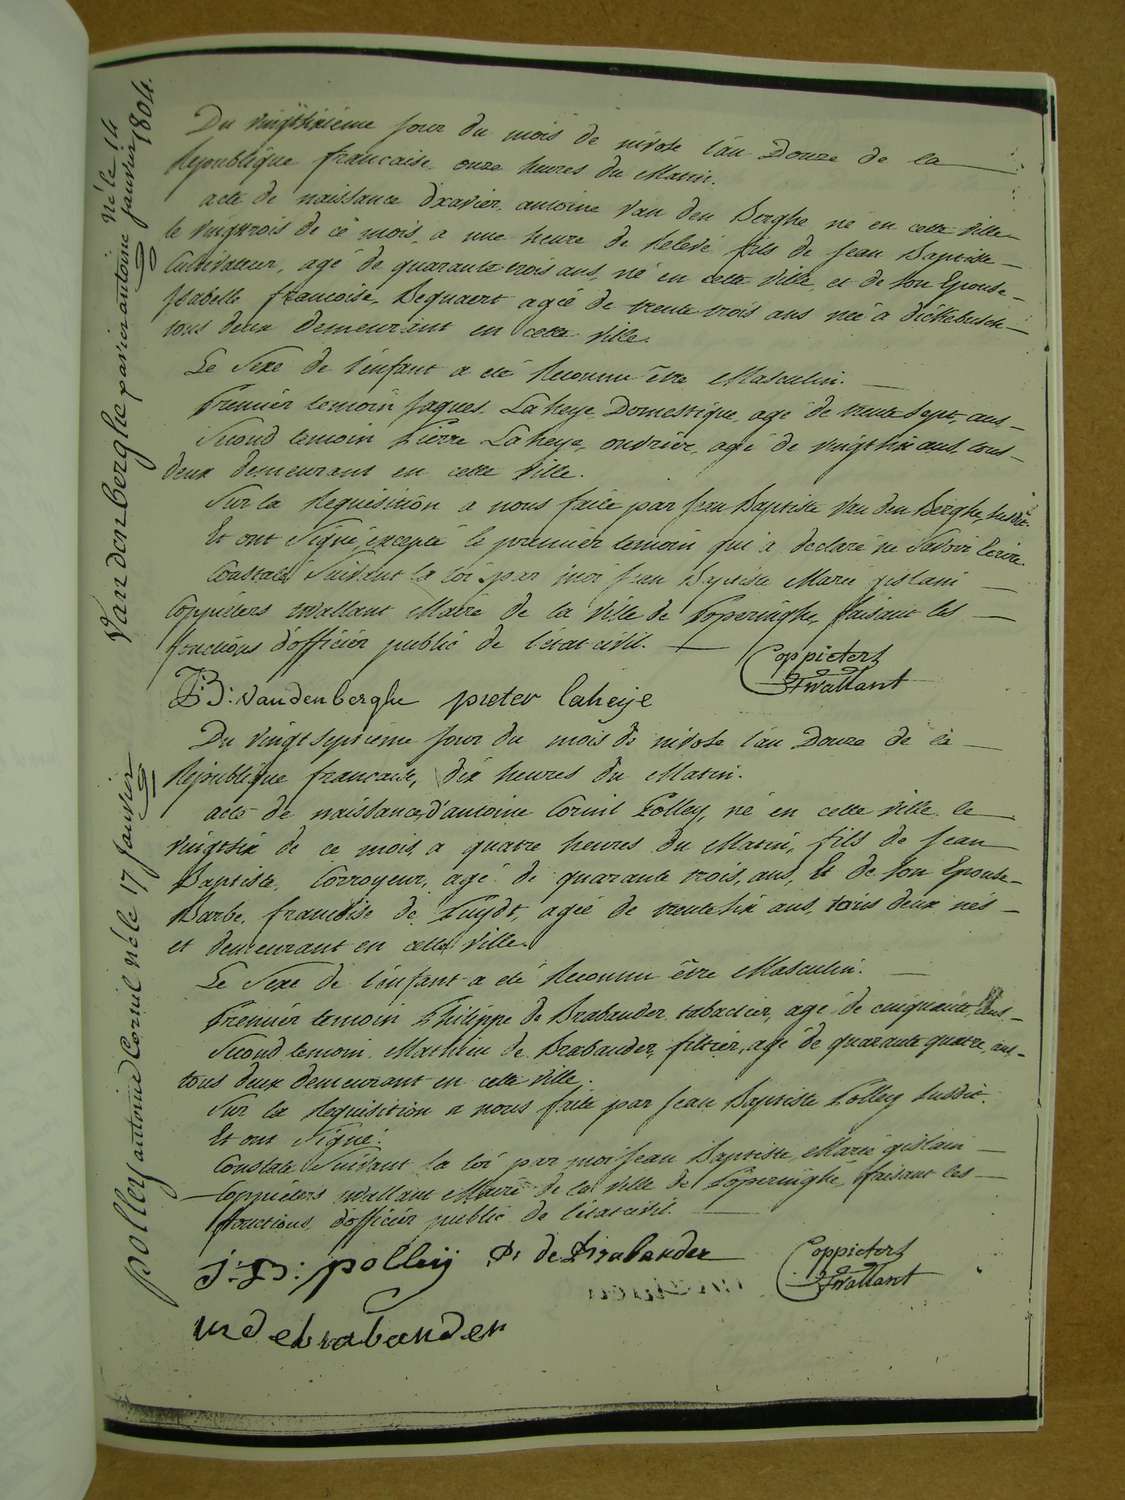 Vandenberghe xavier antoine né le 14
janvier 1804.
Du vingtsixieme jour du mois de nivose l'an Douze de la
Republique francaise onze heures du Matin.
acte de naissance dxavier antoine Van den Berghe né en cette ville
le vingtrois de ce mois, a une heure de Relevé fils de Jean Baptiste
Cultivateur, agé de quarante trois ans, né en cette ville, et de son Epouse
Isabelle francoise Dequaert agée de trente trois ans née a Dickebusch
tous deux Demeurant en cette ville.
Le Sexe de l'enfant a eté Reconnu être Masculin.
Premier temoin Jaques Laheye Domestique, agé de trente sept, ans
Second temoin Pierre Laheye, ouvrier, agé de vingtsix ans, tous
deux demeurant en cette ville.
Sur la Requisition a nous faite par Jean Baptiste Van den Berghe, susdit.
Et ont Signé, excepté le premier temoin qui a declaré ne Savoir Ecrire.
Constaté Suivant la loi par moi Jean Baptiste Marie gislain
Coppieters wallant Maire de la ville de Poperinghe, faisant les
fonctions d'officier public de l'etat civil.
Coppieters
Twallant
J:B: vandenberghe pieter laheije
polley antoine Cornil né le 17 janvier
Du vingt septieme jour du mois de nivose l'an Douze de la
Republique francaise, dix heures du Matin.
acte de naissance, d'antoine Cornil Polley, né en cette ville le
vingtsix de ce mois, a quatre heures du Matin, fils de Jean
Baptiste, Corroyeur, agé de quarante trois, ans, Et de son Epouse
Barbe francoise de Tuydt, agée de trente six ans, tous deux nés
et demeurant en cette ville.
Le Sexe de l'enfant a eté Reconnu être Masculin.
Premier temoin Philippe de Brabander, tabactier, agé de cinquante, ans
Second temoin Mathieu de Brabander, filtier, agé de quarante quatre, ans
tous deux demeurant en cette ville.
Sur la Requisition a nous faite par Jean Baptiste Polley susdit.
Et ont Signé.
Constaté Suivant la loi par moi Jean Baptiste Marie gislain
Coppieters wallant Maire de la ville de Poperinghe, faisant les
fonctions d'officier public de l'etat civil.
J:B: polleij Ph de Brabander
Coppieters
Twallant
m debrabander